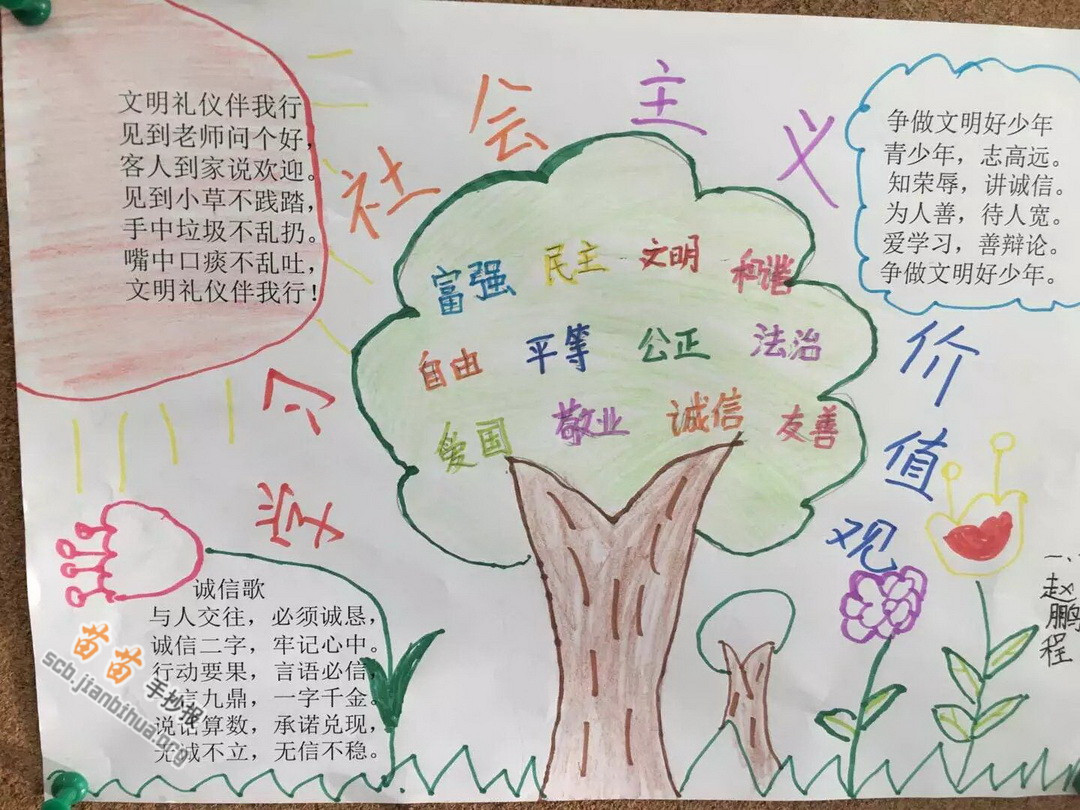 学习社会主义价值观
文明礼仪伴我行
见到老师问个好，
客人到家说欢迎。
见到小草不践踏，
手中垃圾不乱扔。
嘴中口痰不乱吐，
文明礼仪伴我行！
富强 民主 文明 和谐
自由 平等 公正 法治
爱国 敬业 诚信 友善
争做文明好少年
青少年，志高远。
知荣辱，讲诚信。
为人善，待人宽。
爱学习，善辩论。
争做文明好少年。
诚信歌
与人交往，必须诚恳，
诚信二字，牢记心中。
行动要果，言语必信，
言九鼎，一字千金。
说话算数，承诺兑现，
无诚不立，无信不稳。
苗苗手抄报
scb.jianbihua.org
一、
赵鹏程